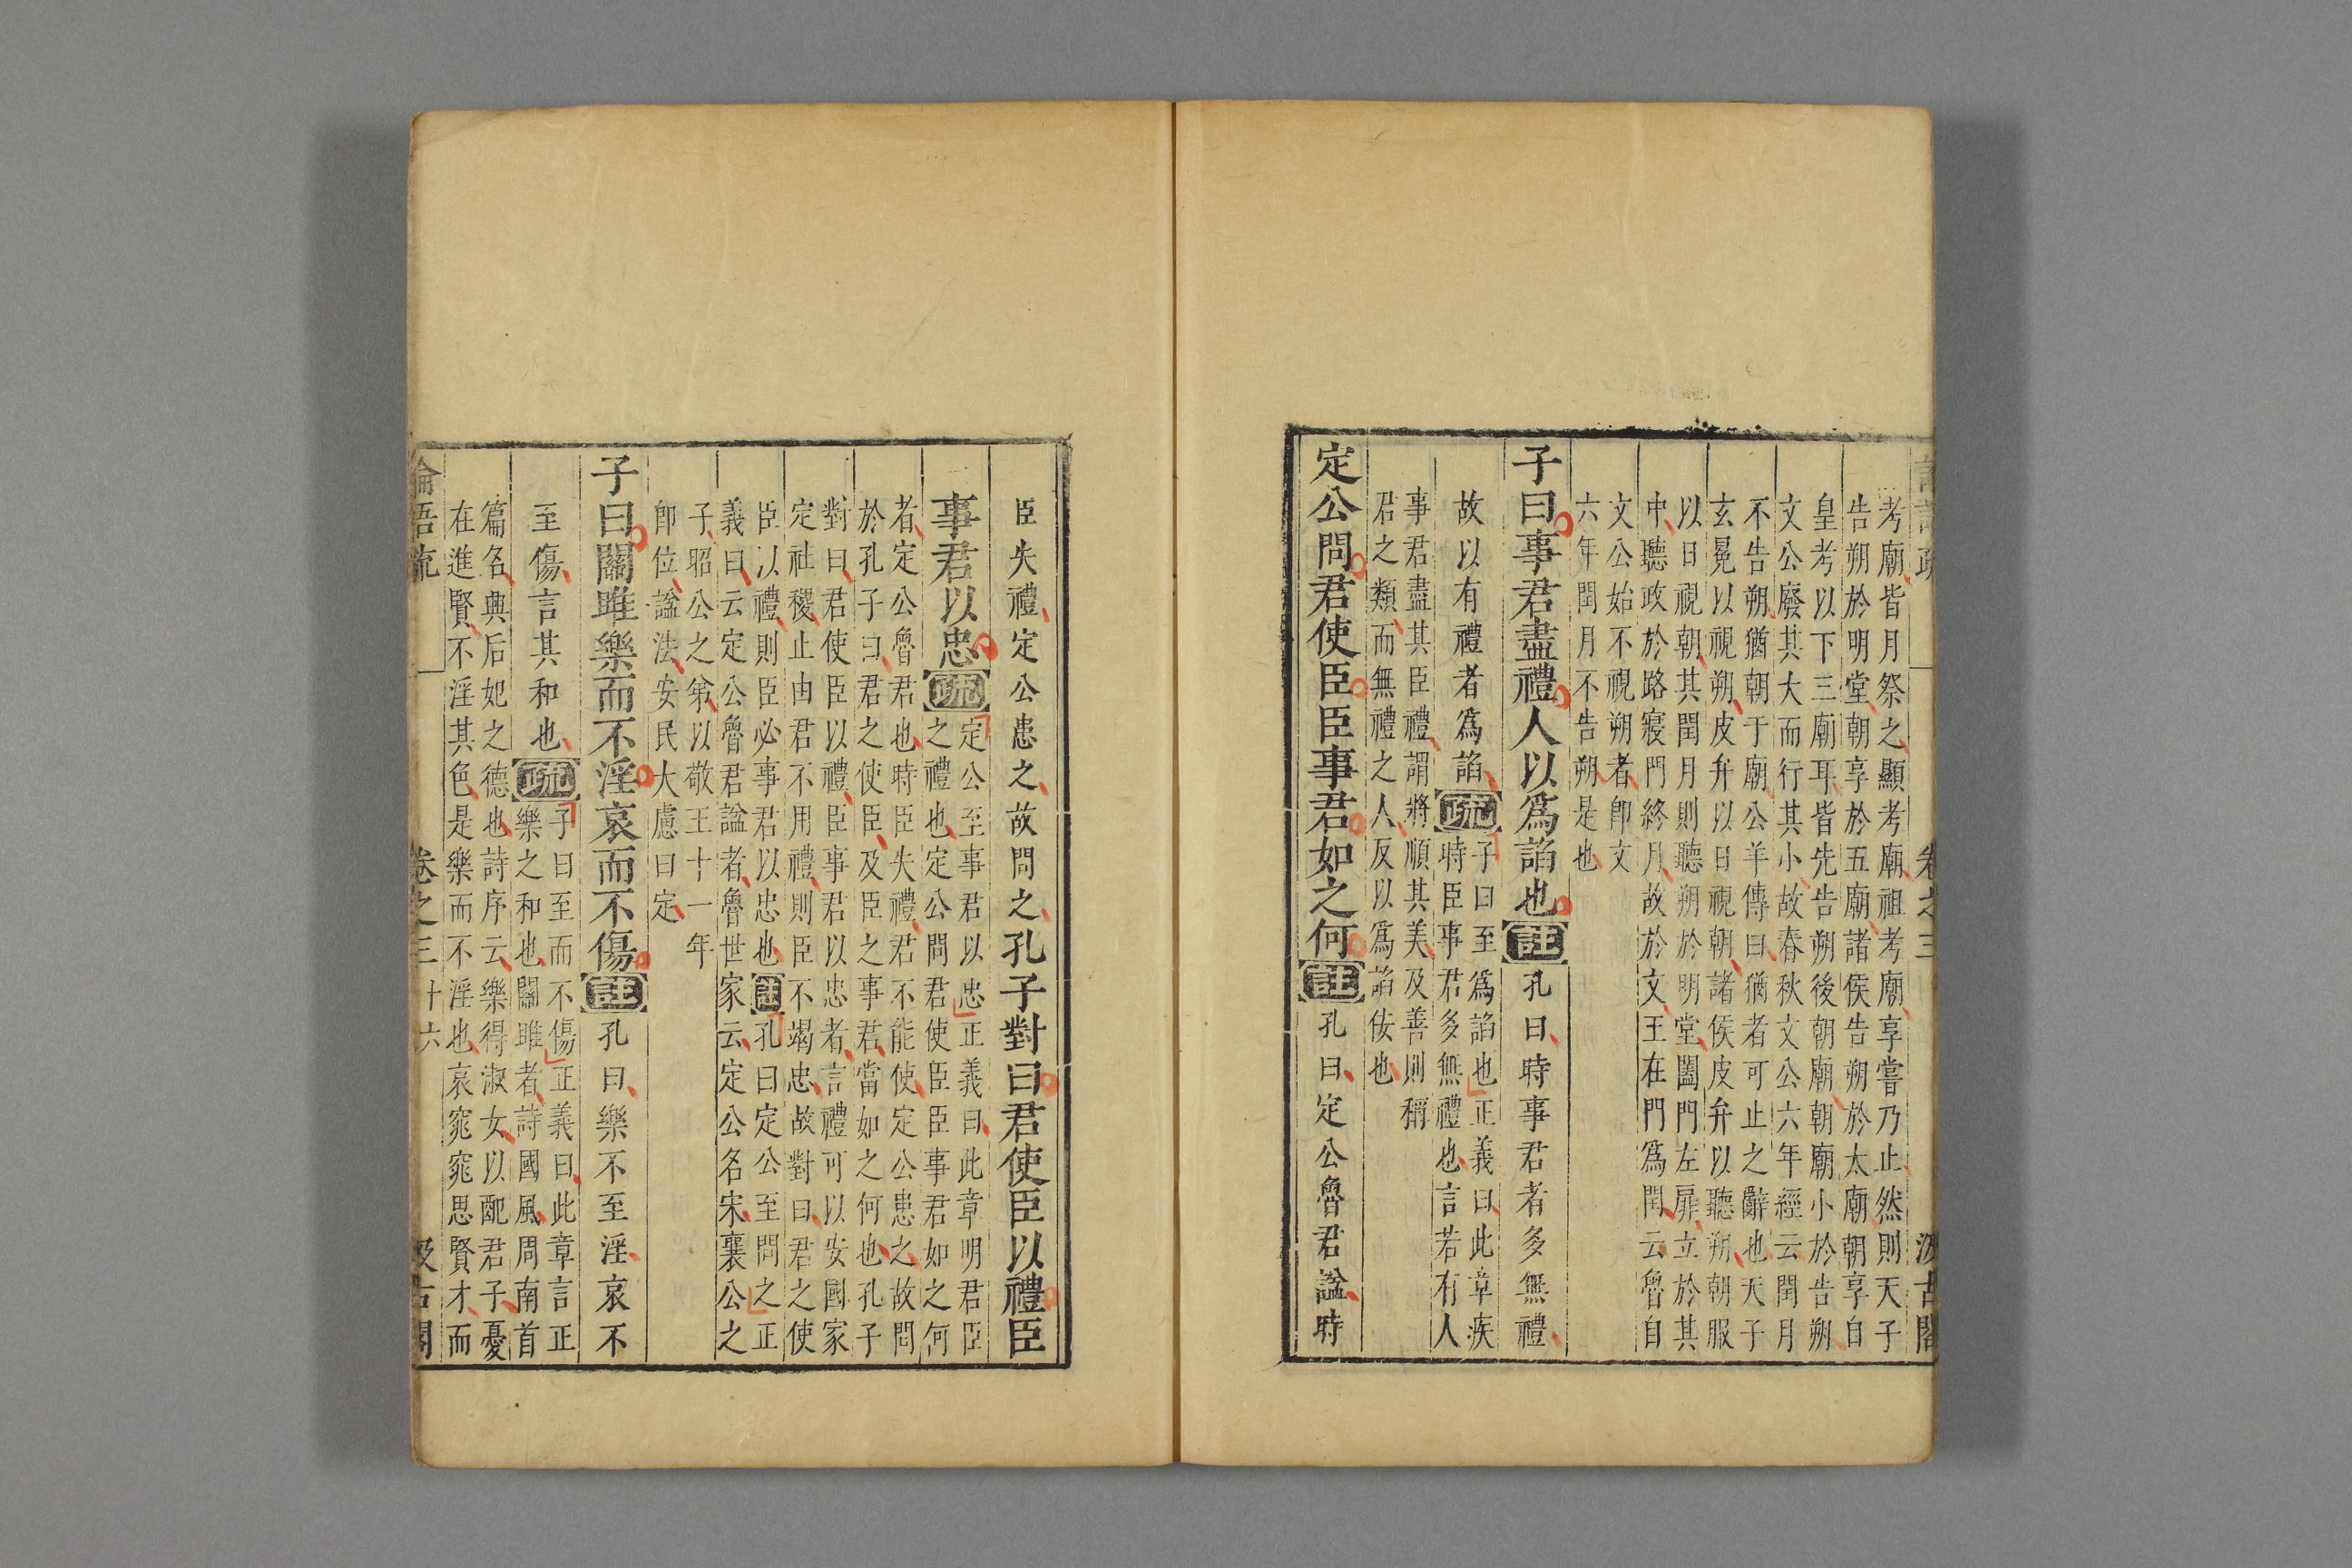 考廟皆月祭之顯考廟祖考廟享嘗乃止然則天子
告朔於明堂朝享於五廟諸侯告朔於太廟朝享自
皇考以下三廟耳皆先告朔後朝廟朝廟小於告朔
文公廢其大而行其小故春秋文公六年經云閏月
不告朔猶朝于廟公羊傳曰猶者可止之辭也天子
玄冕以視朔皮弁以日視朝諸侯皮弁以聽朔朝服
以日視朝其閏月則聽朔於明堂闔門左扉立於其
中聽政於路寢門終月故於文王在門爲閏云魯自
文公始不視朔者卽文
六年閏月不告朔是也
子曰事君盡禮人以爲諂也註孔曰時事君者多無禮
故以有禮者爲諂疏子曰至爲諂也正義曰此章疾
時臣事君多無禮也言若有人
事君盡其臣禮謂將順其美及善則稱
君之類而無禮之人反以爲諂佞也
定公問君使臣臣事君如之何註孔曰定公魯君諡時
臣失禮定公患之故問之孔子對曰君使臣以禮臣
事君以忠疏定公至事君以忠正義曰此章明君臣
之禮也定公問君使臣臣事君如之何
者定公魯君也時臣失禮君不能使定公患之故問
於孔子曰君之使臣及臣之事君當如之何也孔子
對曰君使臣以禮臣事君以忠者言禮可以安國家
定社稷止由君不用禮則臣不竭忠故對曰君之使
臣以禮則臣必事君以忠也註孔曰定公至問之正
義曰云定公魯君諡者魯世家云定公名宋襄公之
子昭公之弟以敬王十一年
卽位諡法安民大慮曰定
子曰關雎樂而不淫哀而不傷註孔曰樂不至淫哀不
至傷言其和也疏子曰至而不傷正義曰此章言正
樂之和也關雎者詩國風周南首
篇名興后妃之德也詩序云樂得淑女以配君子憂
在進賢不淫其色是樂而不淫也哀窈窕思賢才而
論語疏 卷之三 十六 汲古閣